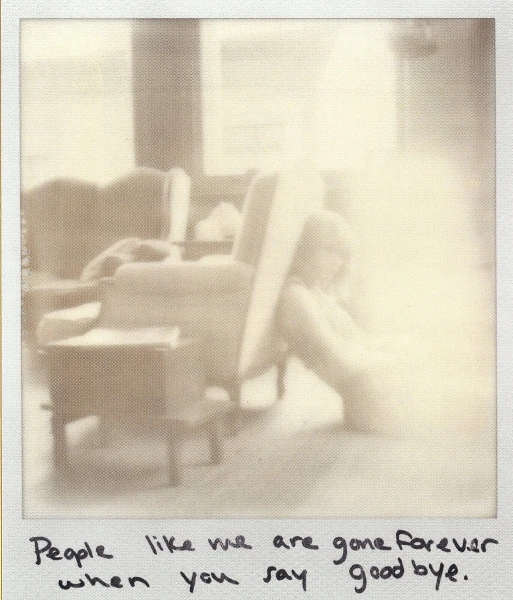 People like me are gone forever
when you say goodbye.